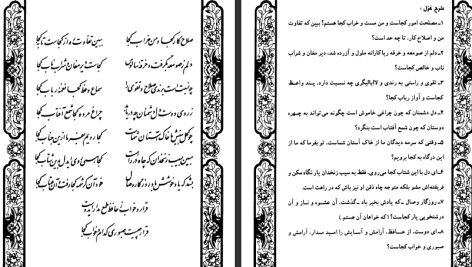 شرح غزل :
۱ـ مصلحت امور کجاست و من مست و خراب کجا هستم؟ ببین که تفاوت
من و اصلاح کار، تا چه حد است؟
۲ـ دلم از صومعه و خرقه ریاکارانه ملول و آزرده شد، دیر مغان و شراب
ناب و خالص کجاست؟
۳ـ تقوی و راستی به رندی و لاابالیگری چه نسبت دارد، پند واعظ
کجاست و آواز رباب کجا؟
۴ـ دل دشمنان که چون چراغی خاموش است چگونه می‌تواند به چهره
دوستان که چون شمع آفتاب است بنگرد؟
۵ـ وقتی که سرمه دیدگان ما از خاک آستان شماست، تو بفرما که ما از
این درگاه به کجا برویم؟
۶ـ ای دل با این شتاب کجا می‌روی، فقط به سیب زنخدان یار نگاه مکن و
فریفته‌اش مشو بلکه متوجه چاه ذقن او نیز باش که در راهت است.
۷ـ روزگار وصال ـ که یادش بخیر باد ـ گذشت، آن عشوه و ناز و آن
درشتخویی یار کجاست؟ (که خواهان آن هستم.)
۸ـ ای دوست، از حافظ، آرامش و آسایش را امید مدار، آرامش و
صبوری و خواب کجاست؟
صلاح کار کجا و من خراب کجا ببین تفاوت ره از کجاست تا بکجا
دلم ز صومعه بگرفت و خرقه سالوس کجاست دیر مغان و شراب ناب کجا
چه نسبتست برندی صلاح و تقوی را سماع وعظ کجا نغمه رباب کجا
ز روی دوست دل دشمنان چه دریابد چراغ مرده کجا شمع آفتاب کجا
چو کحل بینش ما خاک آستان شماست کجا رویم بفرما ازین جناب کجا
مبین بسیب زنخدان که چاه در راهست کجا همی روی ای دل بدین شتاب کجا
بشد که یاد خوشش باد روزگار وصال خود آن کرشمه کجا رفت و آن عتاب کجا
قرار و خواب ز حافظ طمع مدار ای دوست
قرار چیست صبوری کدام و خواب کجا